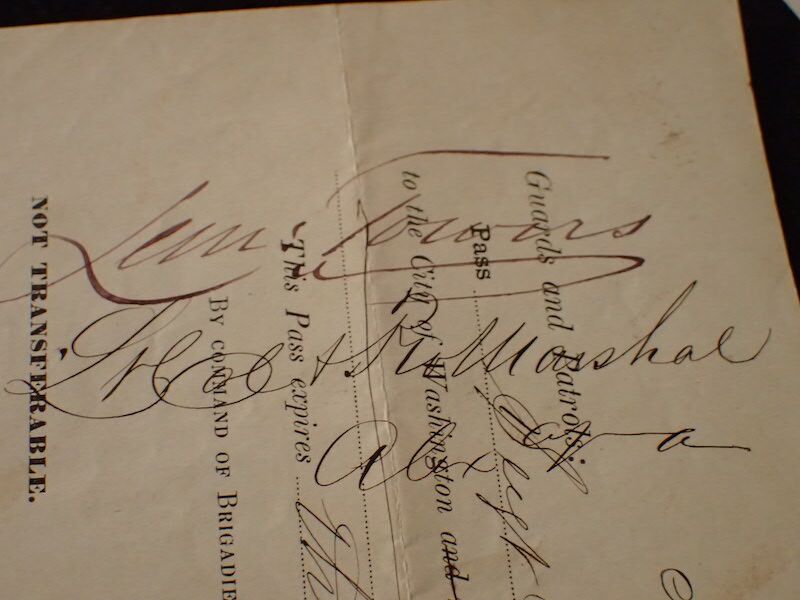 Guards and Patrols:
Pass
to the City of Washington and
This Pass expires
BY COMMAND OF BRIGADIE
NOT TRANSFERABLE.
Lem Towers
Lt Col & Marshal